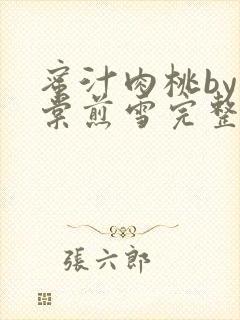 蜜汁肉桃by
棠煎雪完整
張六郎